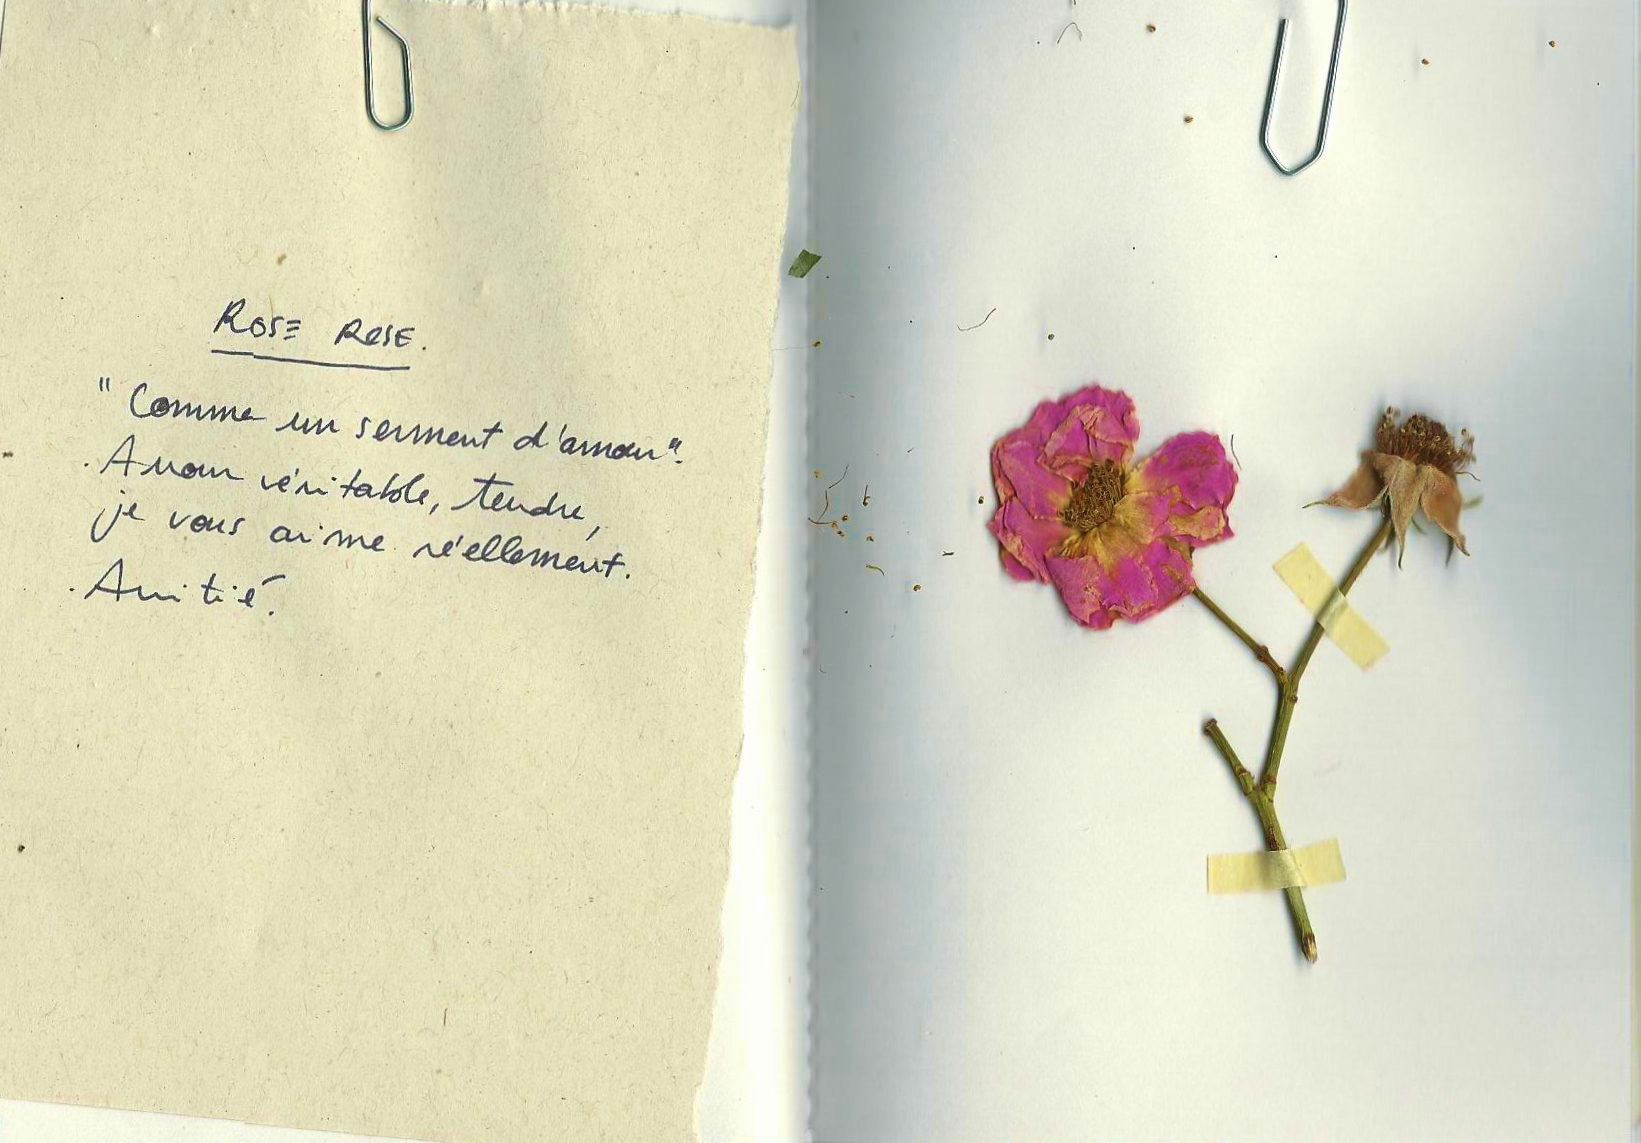 ROSE ROSE.
" Comme un serment d'amour".
. Amour véritable, tendre,
je vous aime réellement.
. Amitié.